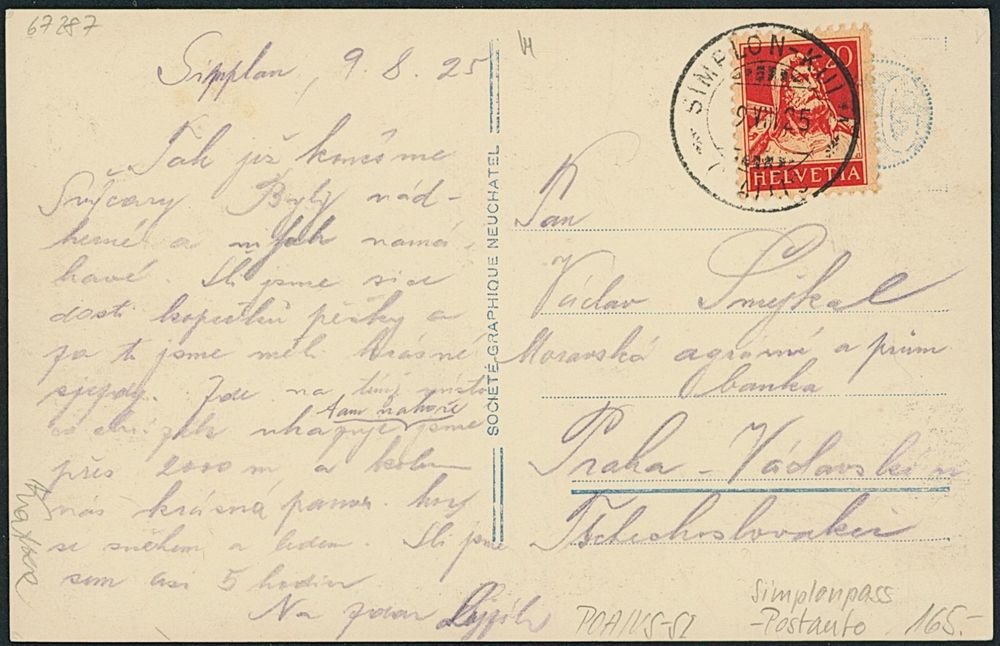 67287
Simplon, 9. 8. 25
Tak již končíme
Švýcary Byly nád-
herné a nějak namá-
havé. Šli jsme sice
dosti kopečků pěšky a
za ti jsme měli krásné
sjezdy. Jde na
tam nahoře
ukazuje jsme
přes 2000 m a kolem
nás krásná panor. hory
se sněhem a ledem. Šli jsme
sem asi 5 hodin
Na zdar
SOCIÉTÉ GRAPHIQUE NEUCHATEL
SIMPLON-KULM
9 VIII 25
20
HELVETIA
Pan
Václav Smejkal
Moravská agrární a prům
banka
Praha - Václavské n
Tschechoslovakei
Simplonpass
-Postauto 165.-